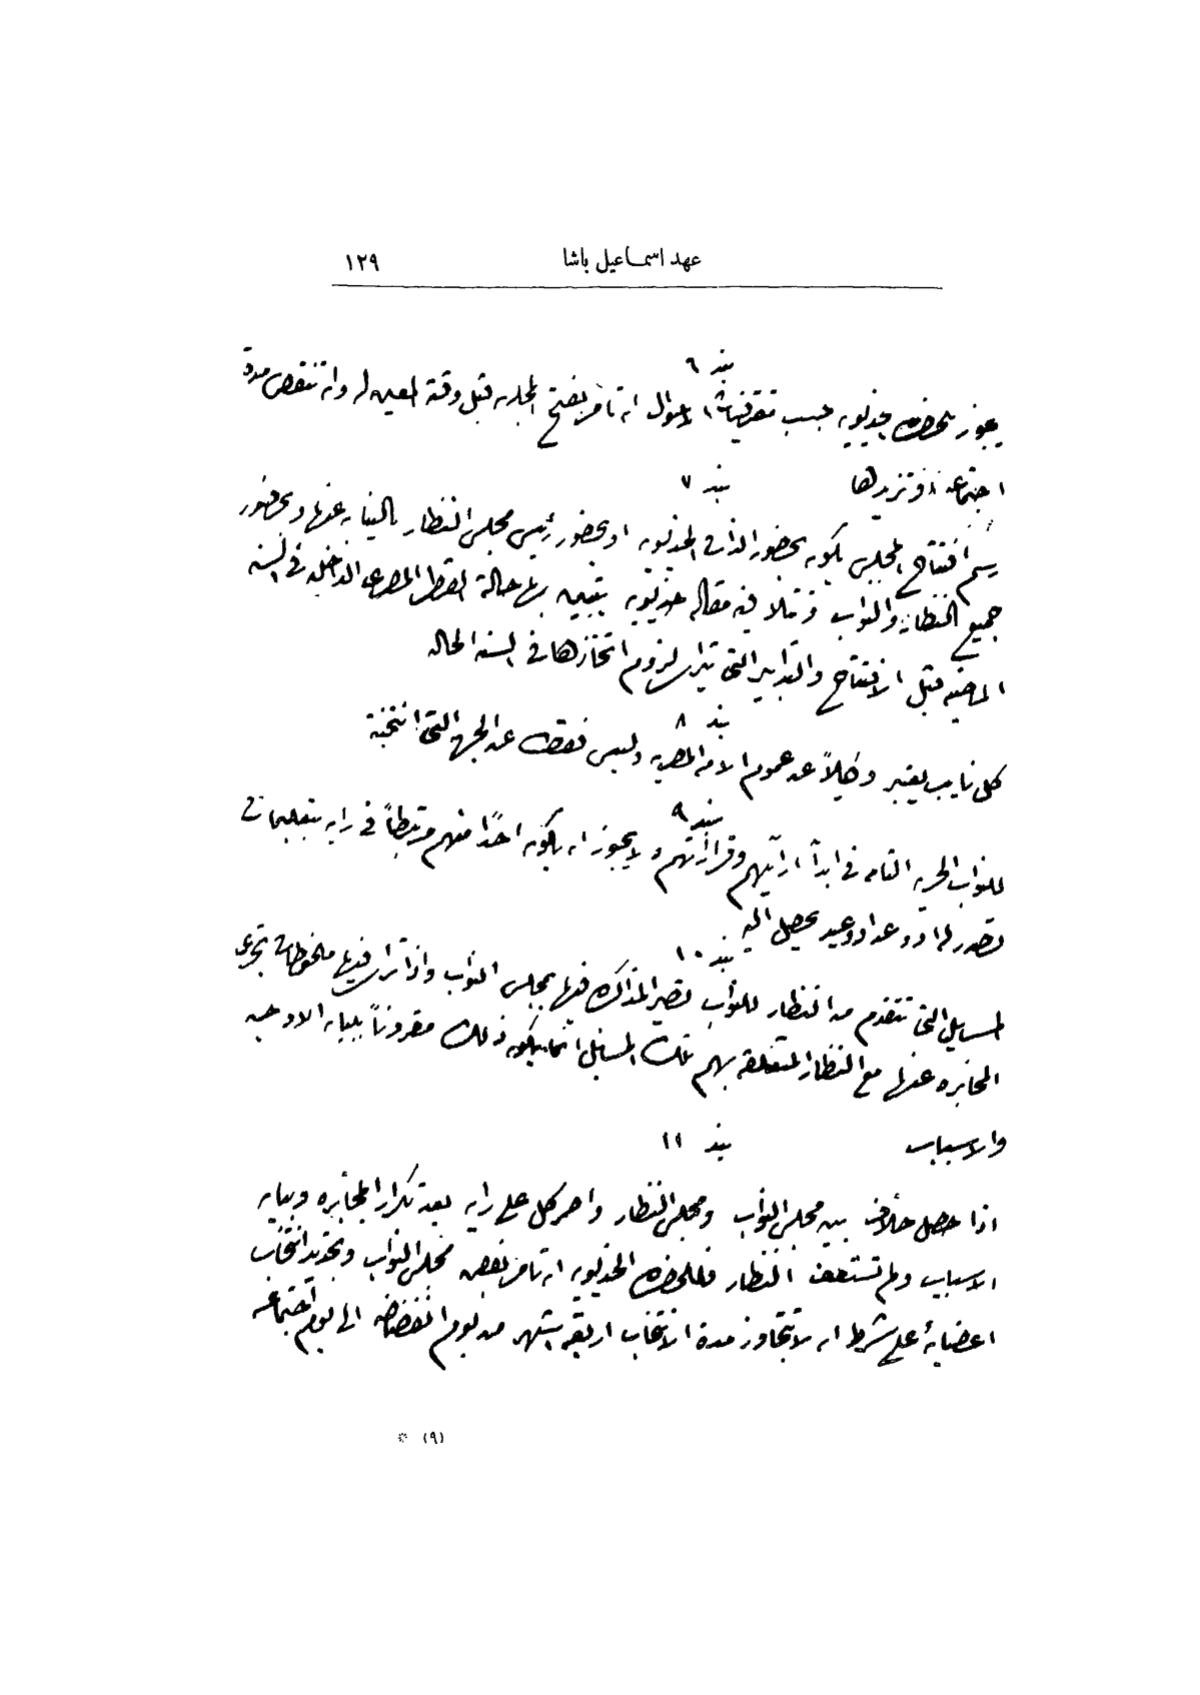 عهد اسماعيل باشا ١٢٩
بند ٦
يجوز للحضره الخديويه حسب مقتضيات الاحوال ان تأمر بفتح المجلس قبل وقته المعين له وان تنقص مدة
اجتماعه او تزيدها
بند ٧
رسم افتتاح المجلس يكون بحضور الذات الخديويه او بحضور رئيس مجلس النظار بالنيابه عنها وبحضور
جميع النظار والنواب وتتلا فيه مقاله خديويه يتبين بها حالة القطر المصرى الداخليه فى السنه
الماضيه قبل الافتتاح والتدابير التى تراى لزوم اتخاذها فى السنه الحاله
بند ٨
كل نايب يعتبر وكيلاً عن عموم الامه المصريه وليس فقط عن الجهه التى انتخبته
بند ٩
للنواب الحريه التامه فى ابدآء ارآئهم وقراراتهم ولا يجوز ان يكون احدًا منهم مرتبطاً فى رايه بتعليمات
تصدر له او وعد او وعيد يحصل اليه
بند ١٠
المسايل التى تتقدم من النظار للنواب تصير المذاكره فيها بمجلس النواب واذا تراى فيها ملحوظات تجرى
المخابره عنها مع النظار المتعلقه بهم تلك المسايل انما يكون ذلك مقروناً ببيان الاوجه
والاسباب
بند ١١
اذا حصل خلاف بين مجلس النواب ومجلس النظار واصر كل على رايه بعد تكرار المخابره وبيان
الاسباب ولم تستعف النظار فللحضره الخديويه ان تأمر بفض مجلس النواب وتجديد انتخاب
اعضايه على شرط ان لا تتجاوز مدة الانتخاب اربعه اشهر من يوم انفضاضه الى يوم اجتماعه
(٩) *